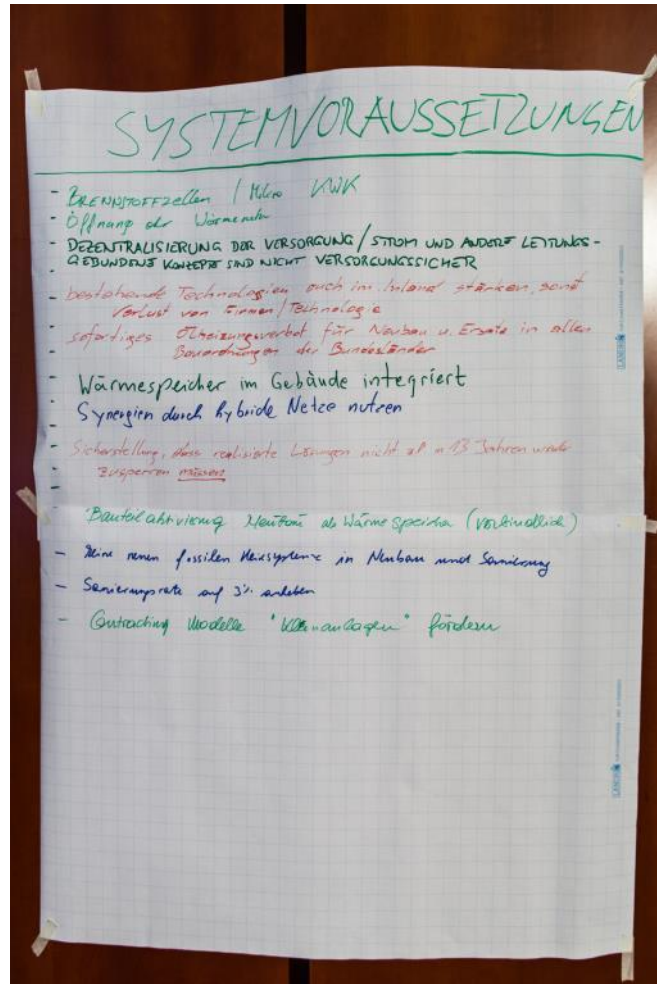 SYSTEMVORAUSSETZUNGEN
- BRENNSTOFFZellen / Mikro KWK
- Öffnung der Wärmenetze
- DEZENTRALISIERUNG DER VERSORGUNG / STROM UND ANDERE LEITUNGS-
GEBUNDENE KONZEPTE SIND NICHT VERSORGUNGSSICHER
- bestehende Technologien auch im Inland stärken, sonst
Verlust von Firmen / Technologie
- sofortiges Ölheizungsverbot für Neubau u. Ersatz in allen
Bauordnungen der Bundesländer
- Wärmespeicher im Gebäude integriert
- Synergien durch hybride Netze nutzen
- Sicherstellung, dass realisierte Lösungen nicht in 13 Jahren wieder
zusperren müssen
- Bauteilaktivierung Neubau als Wärmespeicher (verbindlich)
- Keine neuen fossilen Heizsysteme in Neubau und Sanierung
- Sanierungsrate auf 3% anheben
- Contracting Modelle "Kleinanlagen" fördern
LANDRÉ
LANDRÉ